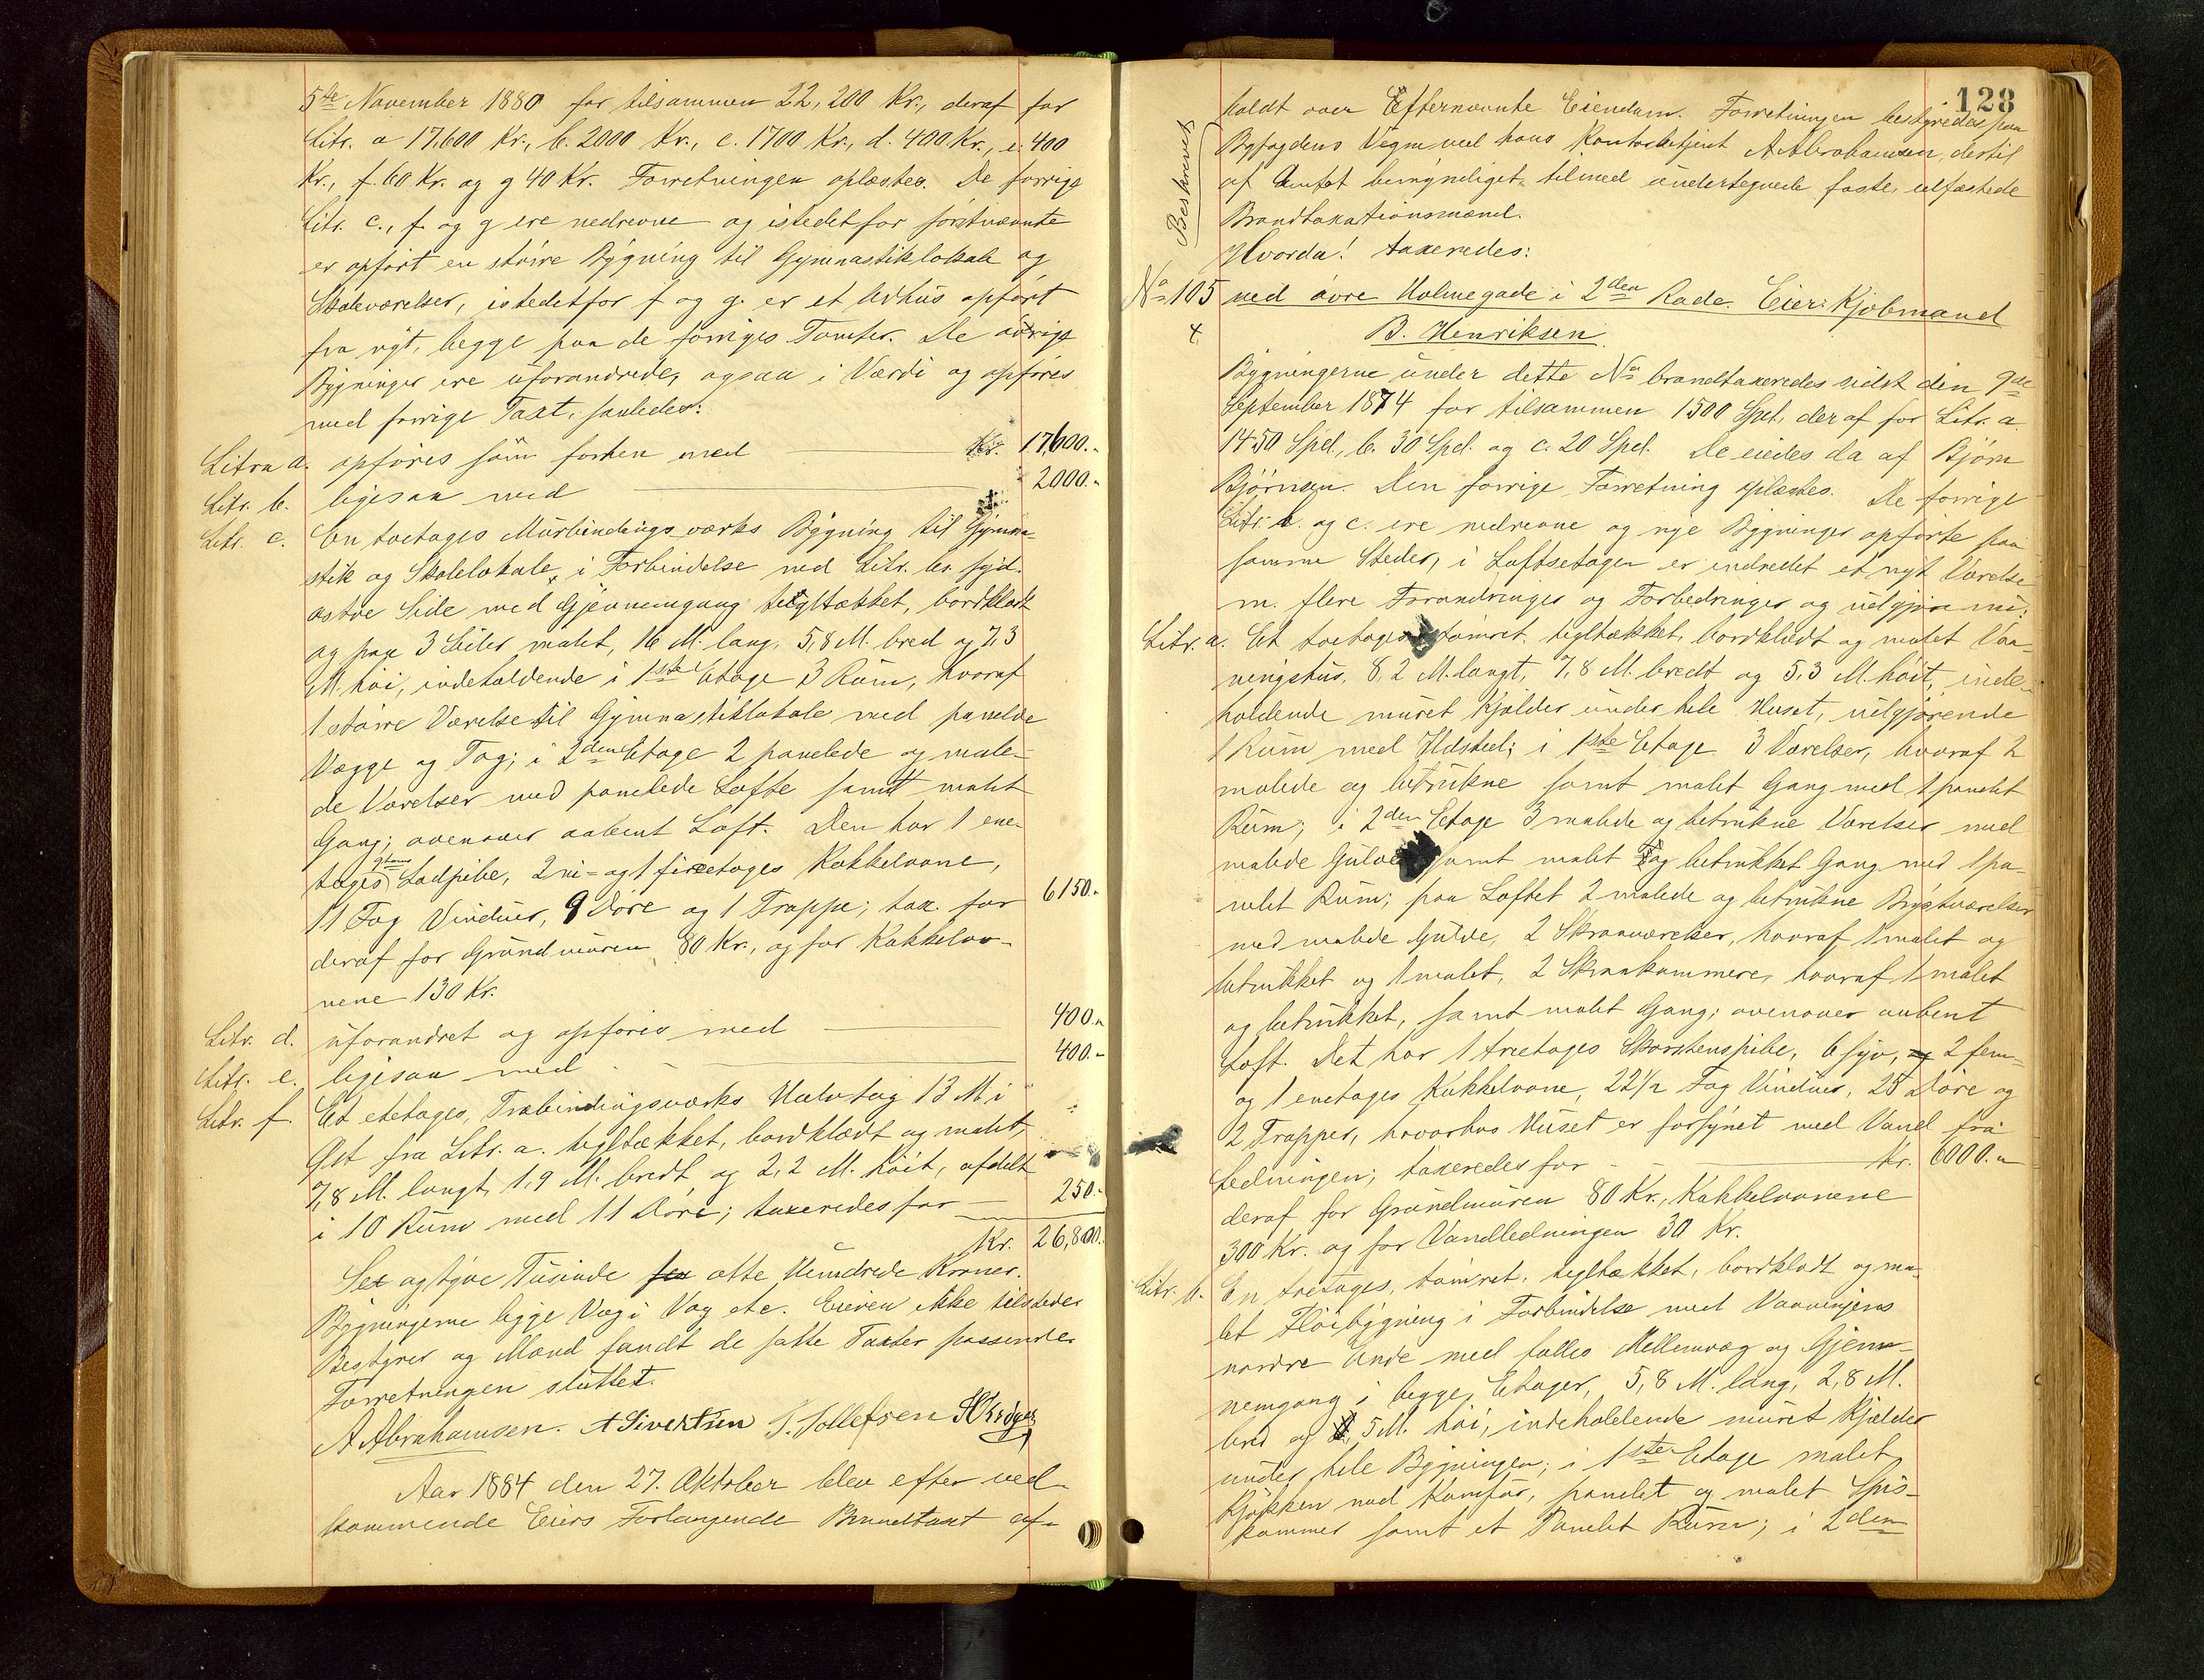 5te November 1880 for tilsammen 22,200 Kr., deraf for
Litr. a 17,600 Kr., b. 2000 Kr., c. 1700 Kr., d. 400 Kr., e. 400
Kr., f. 60 Kr. og g 40 Kr. Forretningen oplæstes. De forrige
Litr. c., f. og g ere nedrevne og istedetfor førstnævnte
er opført en større Bygning til Gymnastiklokale og
Skoleværelser, istedetfor f og g. er et Udhus opført
fra nyt, begge paa de forriges Tomter. De øvrige
Bygninger ere uforandrede, ogsaa i Værdi og opføres
med forrige Taxt, saaledes:
Litra a. opføres som forhen med Kr. 17,600.-
Litr. b. ligesaa med 2000.-
Litr. c. En toetages Murbindingsværks Bygning til Gymna-
stik og Skolelokale, i Forbindelse med Litr. bs syd-
østre Side med Gjennemgang, tegltækket, bordklædt
og paa 3 Sider malet, 16 M. lang, 5,8 M. bred og 7,3
M. høi, indeholdende i 1ste Etage 3 Rum, hvoraf
1 større Værelse til Gymnastiklokale med panelde
Vægge og Tag; i 2den Etage 2 panelede og male-
de Værelser med panelede Lofte samt malet
Gang; ovenover aabent Loft. Den har 1 ene-
tages Lodpibe, 2 ni- og 1 fireetages Kakkelovne,
11 Fag Vinduer, 9 Døre og 1 Trappe; tax. for 6150.-
deraf for Grundmuren 80 Kr., og for Kakkelov-
nene 130 Kr.
Litr. d. uforandret og opføres med 400.-
Litr. e. ligesaa med 400.-
Litr. f. Et etetages, Træbindingsværks Halvtag 13 M. i
Øst fra Litr. a. tegltækket, bordklædt og malet,
7,8 M. langt, 1,9 M. bredt og 2,2 M. høit, afdelt
i 10 Rum med 11 Døre; taxeredes for 250.-
Kr. 26,800.
Sex og tyve Tusinde sex otte Hundrede Kroner.
Bygningerne ligge Væg i Væg etc. Eieren ikke tilstede.
Bestyrer og Mænd fandt de satte Taxter passende.
Forretningen sluttet.
A Abrahamsen. A Sivertsen T. Tollefsen
Aar 1884 den 27. Oktober blev efter ved-
kommende Eiers Forlangende Brandtaxt af-
128
holdt over Efternævnte Eiendom. Forretningen bestyredes paa
Byfogdens Vegne ved hans Kontorbetjent A Abrahamsen, dertil
af Amtet bemyndiget, tilmed undertegnede faste, edfæstede
Brandtaxationsmænd.
Beskrevet
Hvorda! taxeredes:
No 105 ved øvre Holmegade i 2den Rode. Eier: Kjøbmand
4
B. Henriksen.
Bygningerne under dette No brandtaxeredes sidst den 9de
September 1874 for tilsammen 1500 Spd., deraf for Litr. a.
1450 Spd., b. 30 Spd. og c. 20 Spd. De eiedes da af Bjørn
Bjørnsen. Den forrige Forretning oplæstes. De forrige
Litr. b. og c. ere nedrevne og nye Bygninger opførte paa
samme Steder, i Loftsetagen er indredet et nyt Værelse
m. flere Forandringer og Forbedringer og udgjøre nu:
Litr. a. Et toetages tømret, tegltækket, bordklædt og malet Vaa-
ningshus, 8,2 M. langt, 7,8 M. bredt og 5,3 M. høit, inde-
holdende muret Kjælder under hele Huset, udgjørende
1 Rum med Ildsted; i 1ste Etage 3 Værelser, hvoraf 2
malede og betrukne samt malet Gang med 1 panelet
Rum; i 2den Etage 3 malede og betrukne Værelser med
malede Gulve samt malet og betrukket Gang med 1 pa-
nelet Rum; paa Loftet 2 malede og betrukne Brystværelser
med malede Gulve, 2 Skraaværelser, hvoraf 1 malet og
betrukket og 1 malet, 2 Skraakammere, hvoraf 1 malet
og betrukket, samt malet Gang; ovenover aabent
Loft. Det har 1 treetages Skorstenspibe, 6 syv, og 2 fem-
og 1 enetages Kakkelovne, 22 1/2 Fag Vinduer, 25 Døre og
2 Trapper, hvorhos Huset er forsynet med Vand fra
Ledningen; taxeredes for Kr. 6000.-
deraf for Grundmuren 80 Kr., Kakkelovnene
300 Kr. og for Vandledningen 30 Kr.
Litr. b. En toetages, tømret, tegltækket, bordklædt og ma-
let Fløibygning i Forbindelse med Vaaningens
nordre Ende med fælles Mellemvæg og Gjen-
nemgang i begge Etager, 5,8 M. lang, 2,8 M.
bred og 5 M. høi, indeholdende muret Kjælder
under hele Bygningen; i 1ste Etage malet
Kjøkken med Komfur, panelet og malet Spis-
kammer samt et Panelet Rum; i 2den